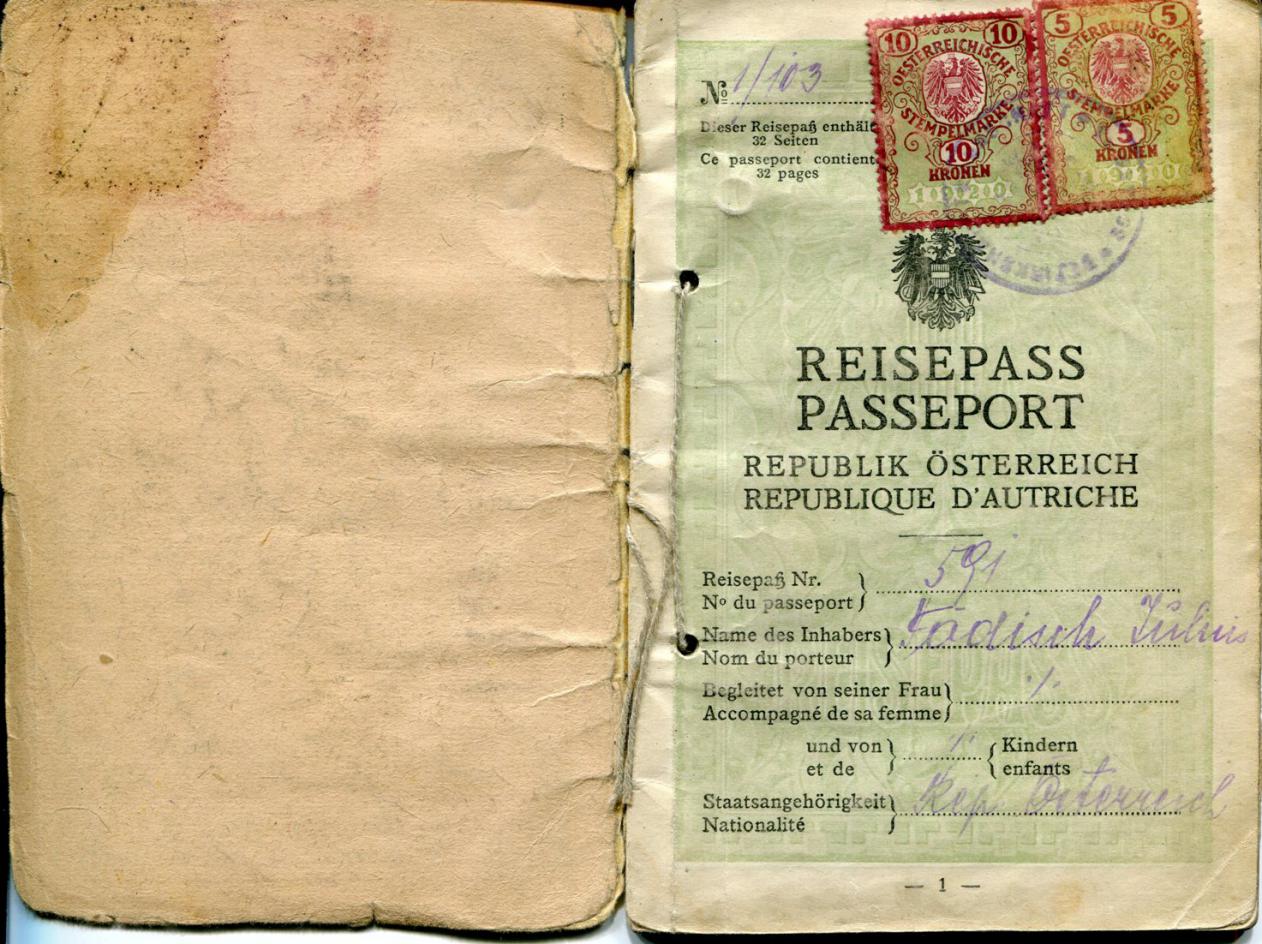 № 1/103
Dieser Reisepaß enthält
32 Seiten
Ce passeport contient
32 pages
10 10
OESTERREICHISCHE
STEMPELMARKE
10
KRONEN
1920
5 5
OESTERREICHISCHE
STEMPELMARKE
5
KRONEN
1920
REISEPASS
PASSEPORT
REPUBLIK ÖSTERREICH
REPUBLIQUE D'AUTRICHE
Reisepaß Nr. 591
Nº du passeport
Name des Inhabers Julius
Nom du porteur
Begleitet von seiner Frau
Accompagné de sa femme
und von Kindern
et de enfants
Staatsangehörigkeit Rep. Österreich
Nationalité
— 1 —